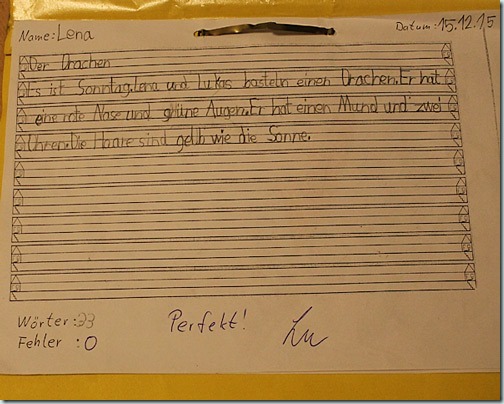 Name: Lena
Datum: 15.12.15
Der Drachen
Es ist Sonntag. Lena und Lukas basteln einen Drachen. Er hat
eine rote Nase und grüne Augen. Er hat einen Mund und zwei
Ohren. Die Haare sind gelb wie die Sonne.
Wörter: 33
Fehler: 0
Perfekt!